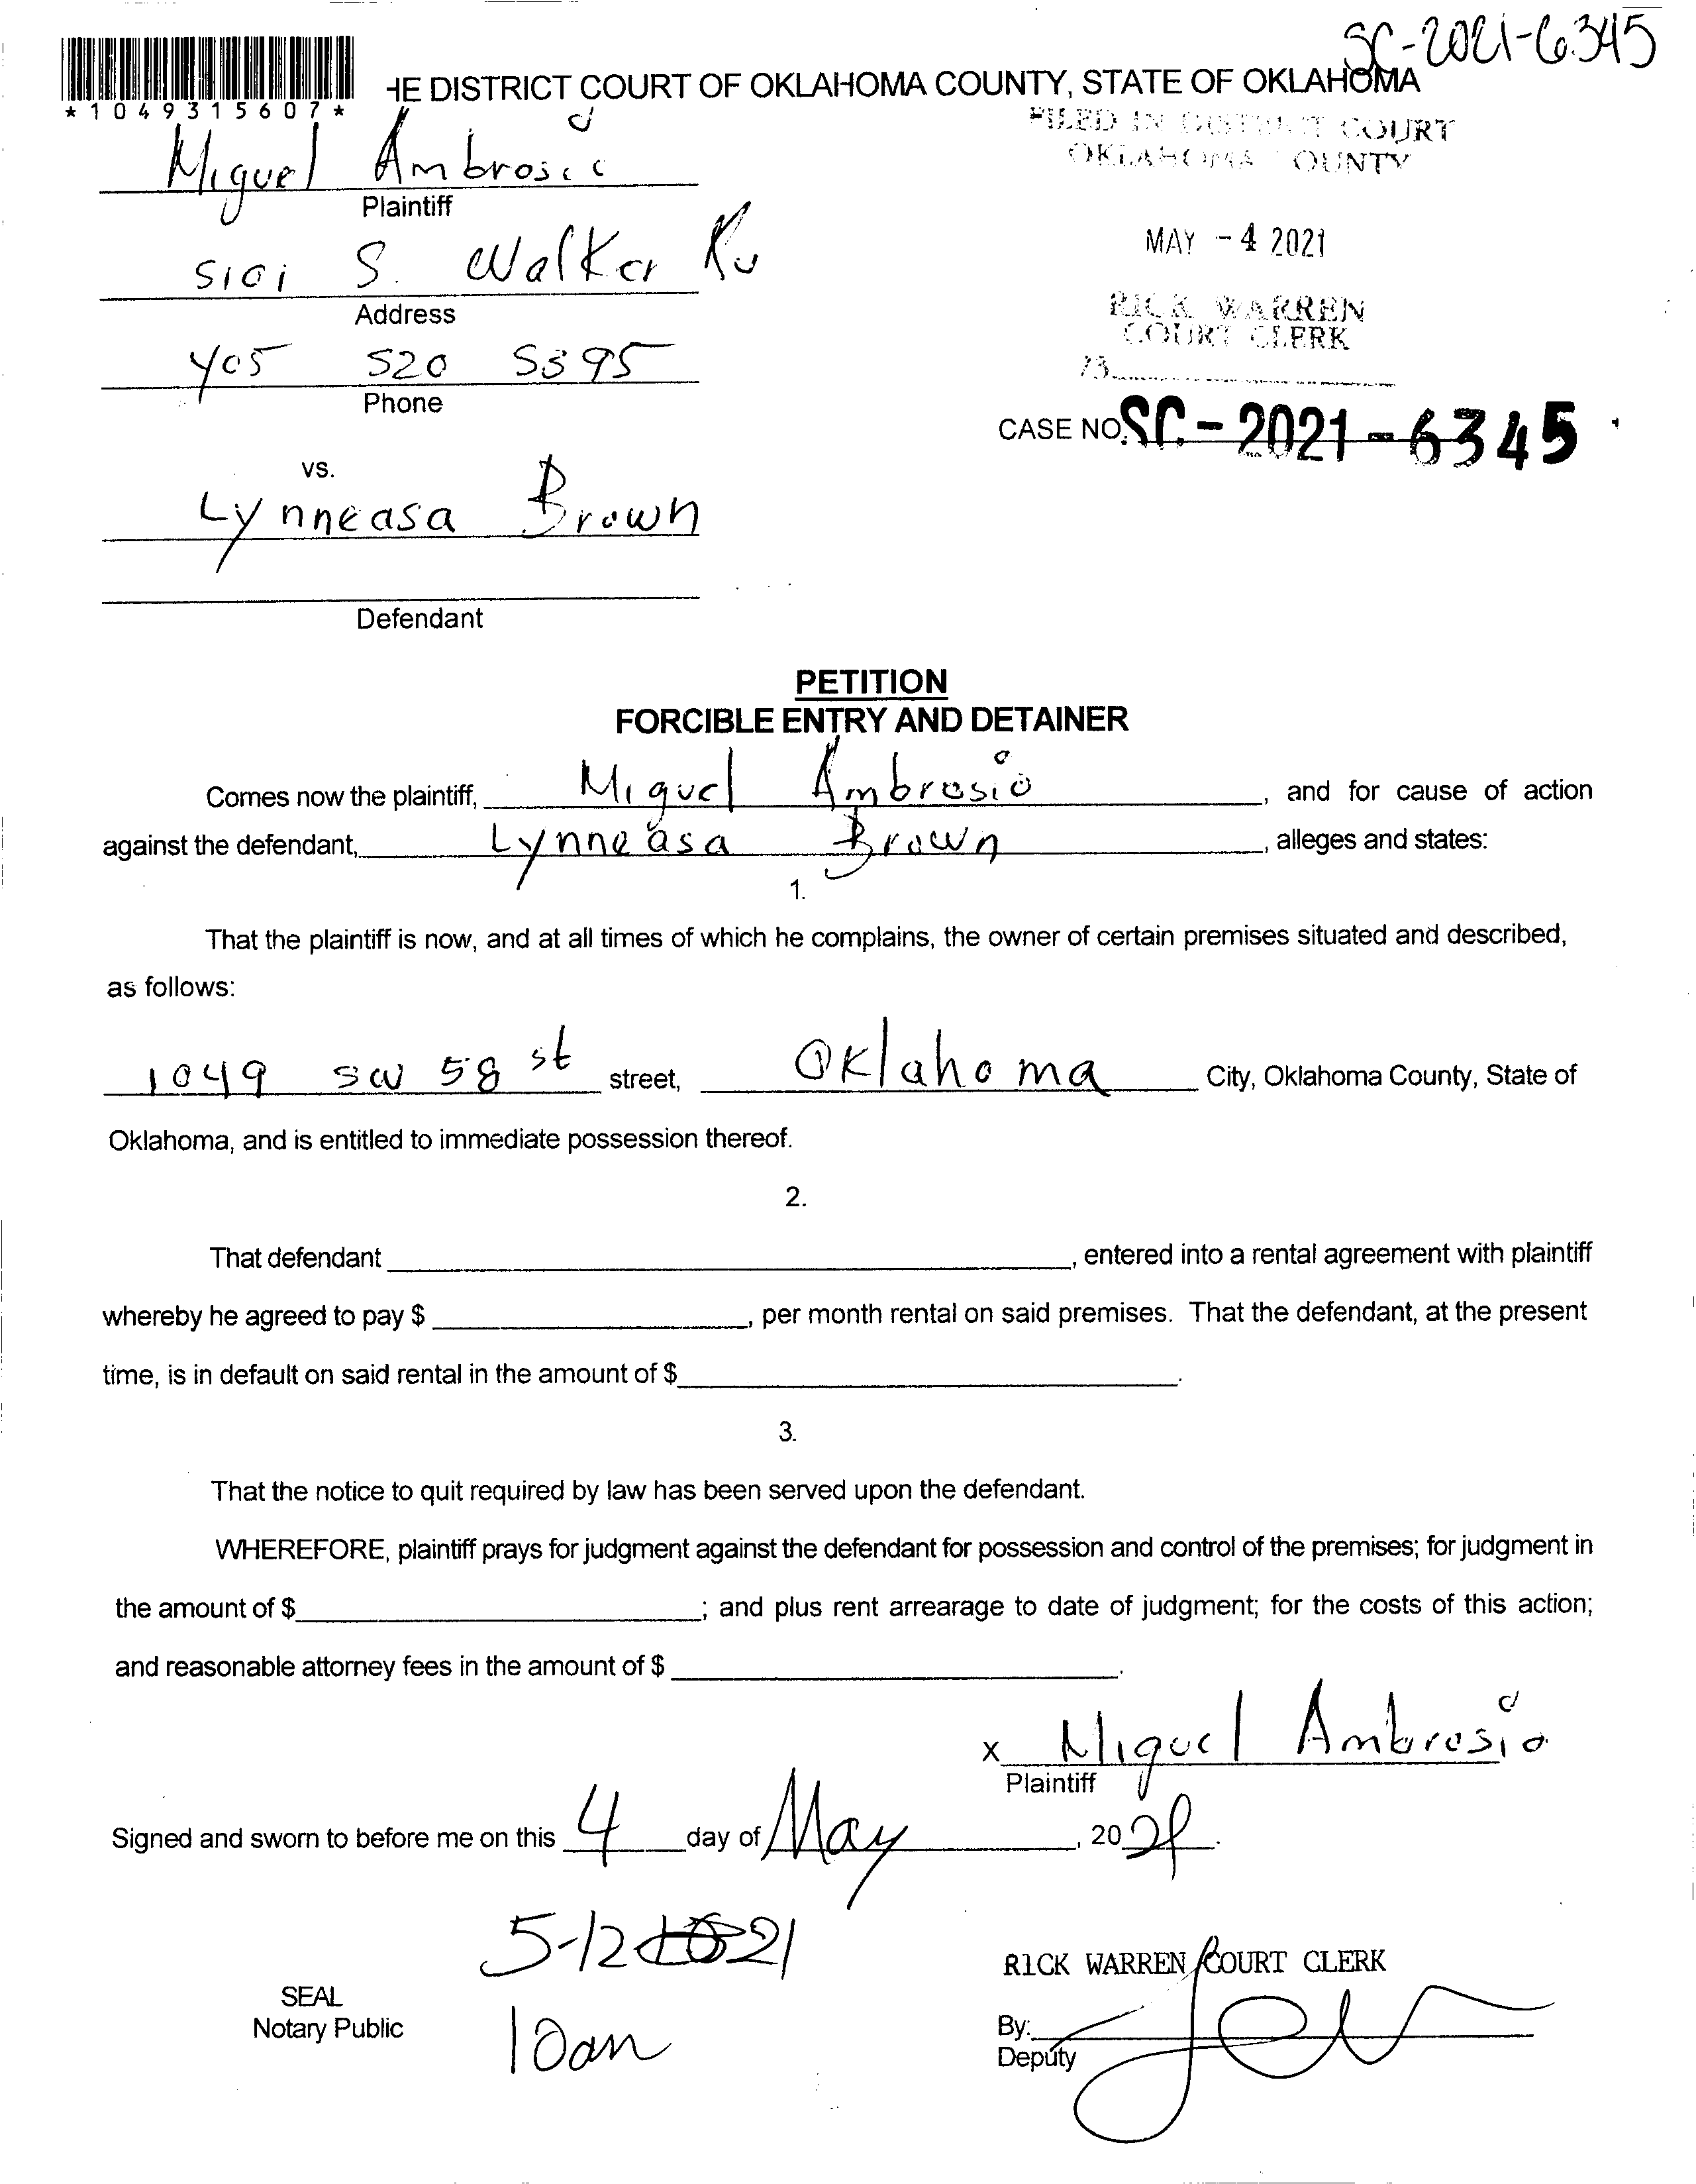 SC-2021-6345
*1049315607*
HE DISTRICT COURT OF OKLAHOMA COUNTY, STATE OF OKLAHOMA
FILED IN DISTRICT COURT
OKLAHOMA COUNTY
Miguel Ambrosio
Plaintiff
MAY -4 2021
S. Walker
Address
RICK WARREN
COURT CLERK
405 520 5395
Phone
CASE NO. SC-2021-6345
vs.
Lynneasa Brown
Defendant
PETITION
FORCIBLE ENTRY AND DETAINER
Comes now the plaintiff, Miguel Ambrosio, and for cause of action
against the defendant, Lynneasa Brown, alleges and states:
1.
That the plaintiff is now, and at all times of which he complains, the owner of certain premises situated and described,
as follows:
1049 SW 58 st street, Oklahoma City, Oklahoma County, State of
Oklahoma, and is entitled to immediate possession thereof.
2.
That defendant , entered into a rental agreement with plaintiff
whereby he agreed to pay $ , per month rental on said premises. That the defendant, at the present
time, is in default on said rental in the amount of $ .
3.
That the notice to quit required by law has been served upon the defendant.
WHEREFORE, plaintiff prays for judgment against the defendant for possession and control of the premises; for judgment in
the amount of $ ; and plus rent arrearage to date of judgment; for the costs of this action;
and reasonable attorney fees in the amount of $ .
x Miguel Ambrosio
Plaintiff
Signed and sworn to before me on this 4 day of May, 2021.
5-12 21
RICK WARREN COURT CLERK
SEAL
Notary Public
10am
By:
Deputy